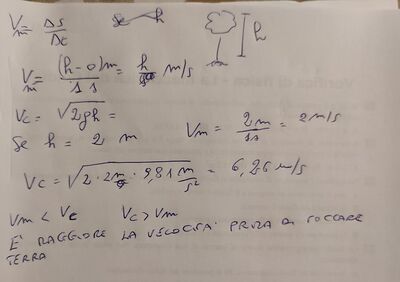 Vm = Δs/Δt   se   h
Vm = (h-0)m/1s = h m/s
Vc = √2gh =
Se h = 2 m   Vm = 2m/1s = 2 m/s
Vc = √2·2m·9,81 m/s² = 6,26 m/s
Vm < Vc   Vc > Vm
E' MAGGIORE LA VELOCITA' PRIMA DI TOCCARE
TERRA